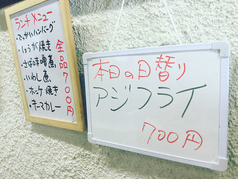 ランチメニュー
・てっかいハンバーグ
・しょうが焼き
・さばみそ煮
・いわし煮
・ホッケ焼き
・キーマカレー
全品700円
本日の日替り
アジフライ
700円